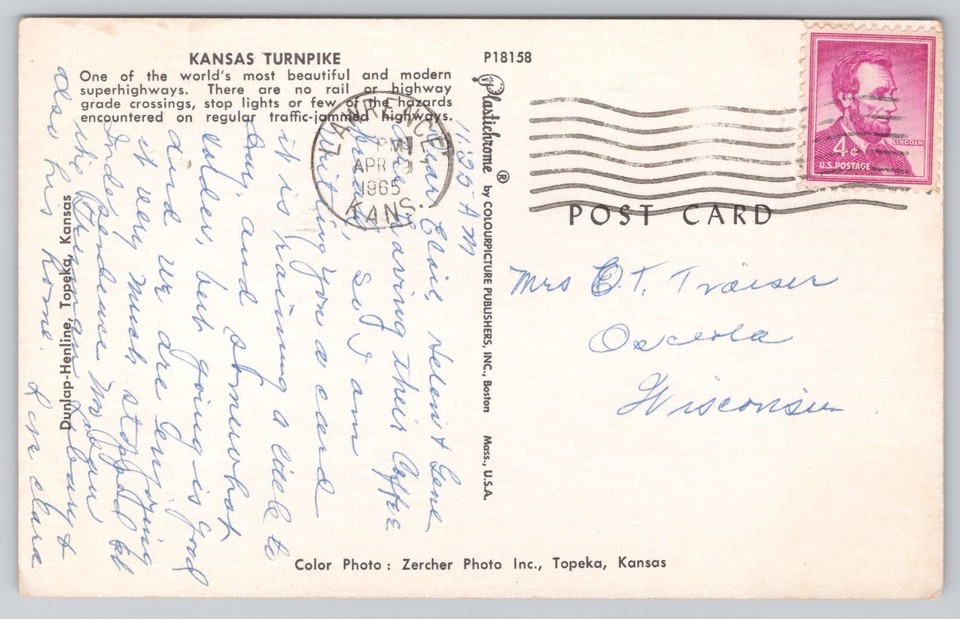 KANSAS TURNPIKE
One of the world's most beautiful and modern
superhighways. There are no rail or highway
grade crossings, stop lights or few of the hazards
encountered on regular traffic-jammed highways.
P18158
Plastichrome ® by COLOURPICTURE PUBLISHERS, INC., Boston Mass., U.S.A.
LAWRENCE
PM
APR 9
1965
KANS.
LINCOLN
4¢
U.S. POSTAGE
POST CARD
Mrs E.T. Traiser
Osceola
Wisconsin
11:25 A M
Dear Elsie, Helen & Gene
are having their Coffee
so I am
writing you a card
it is raining a little to
day, and somewhat
colder, but going is good
and we are enjoying
it very much stopped at
Independence Mo. saw
the Truman Library &
also his home. Luv Clara
Dunlap-Henline, Topeka, Kansas
Color Photo: Zercher Photo Inc., Topeka, Kansas